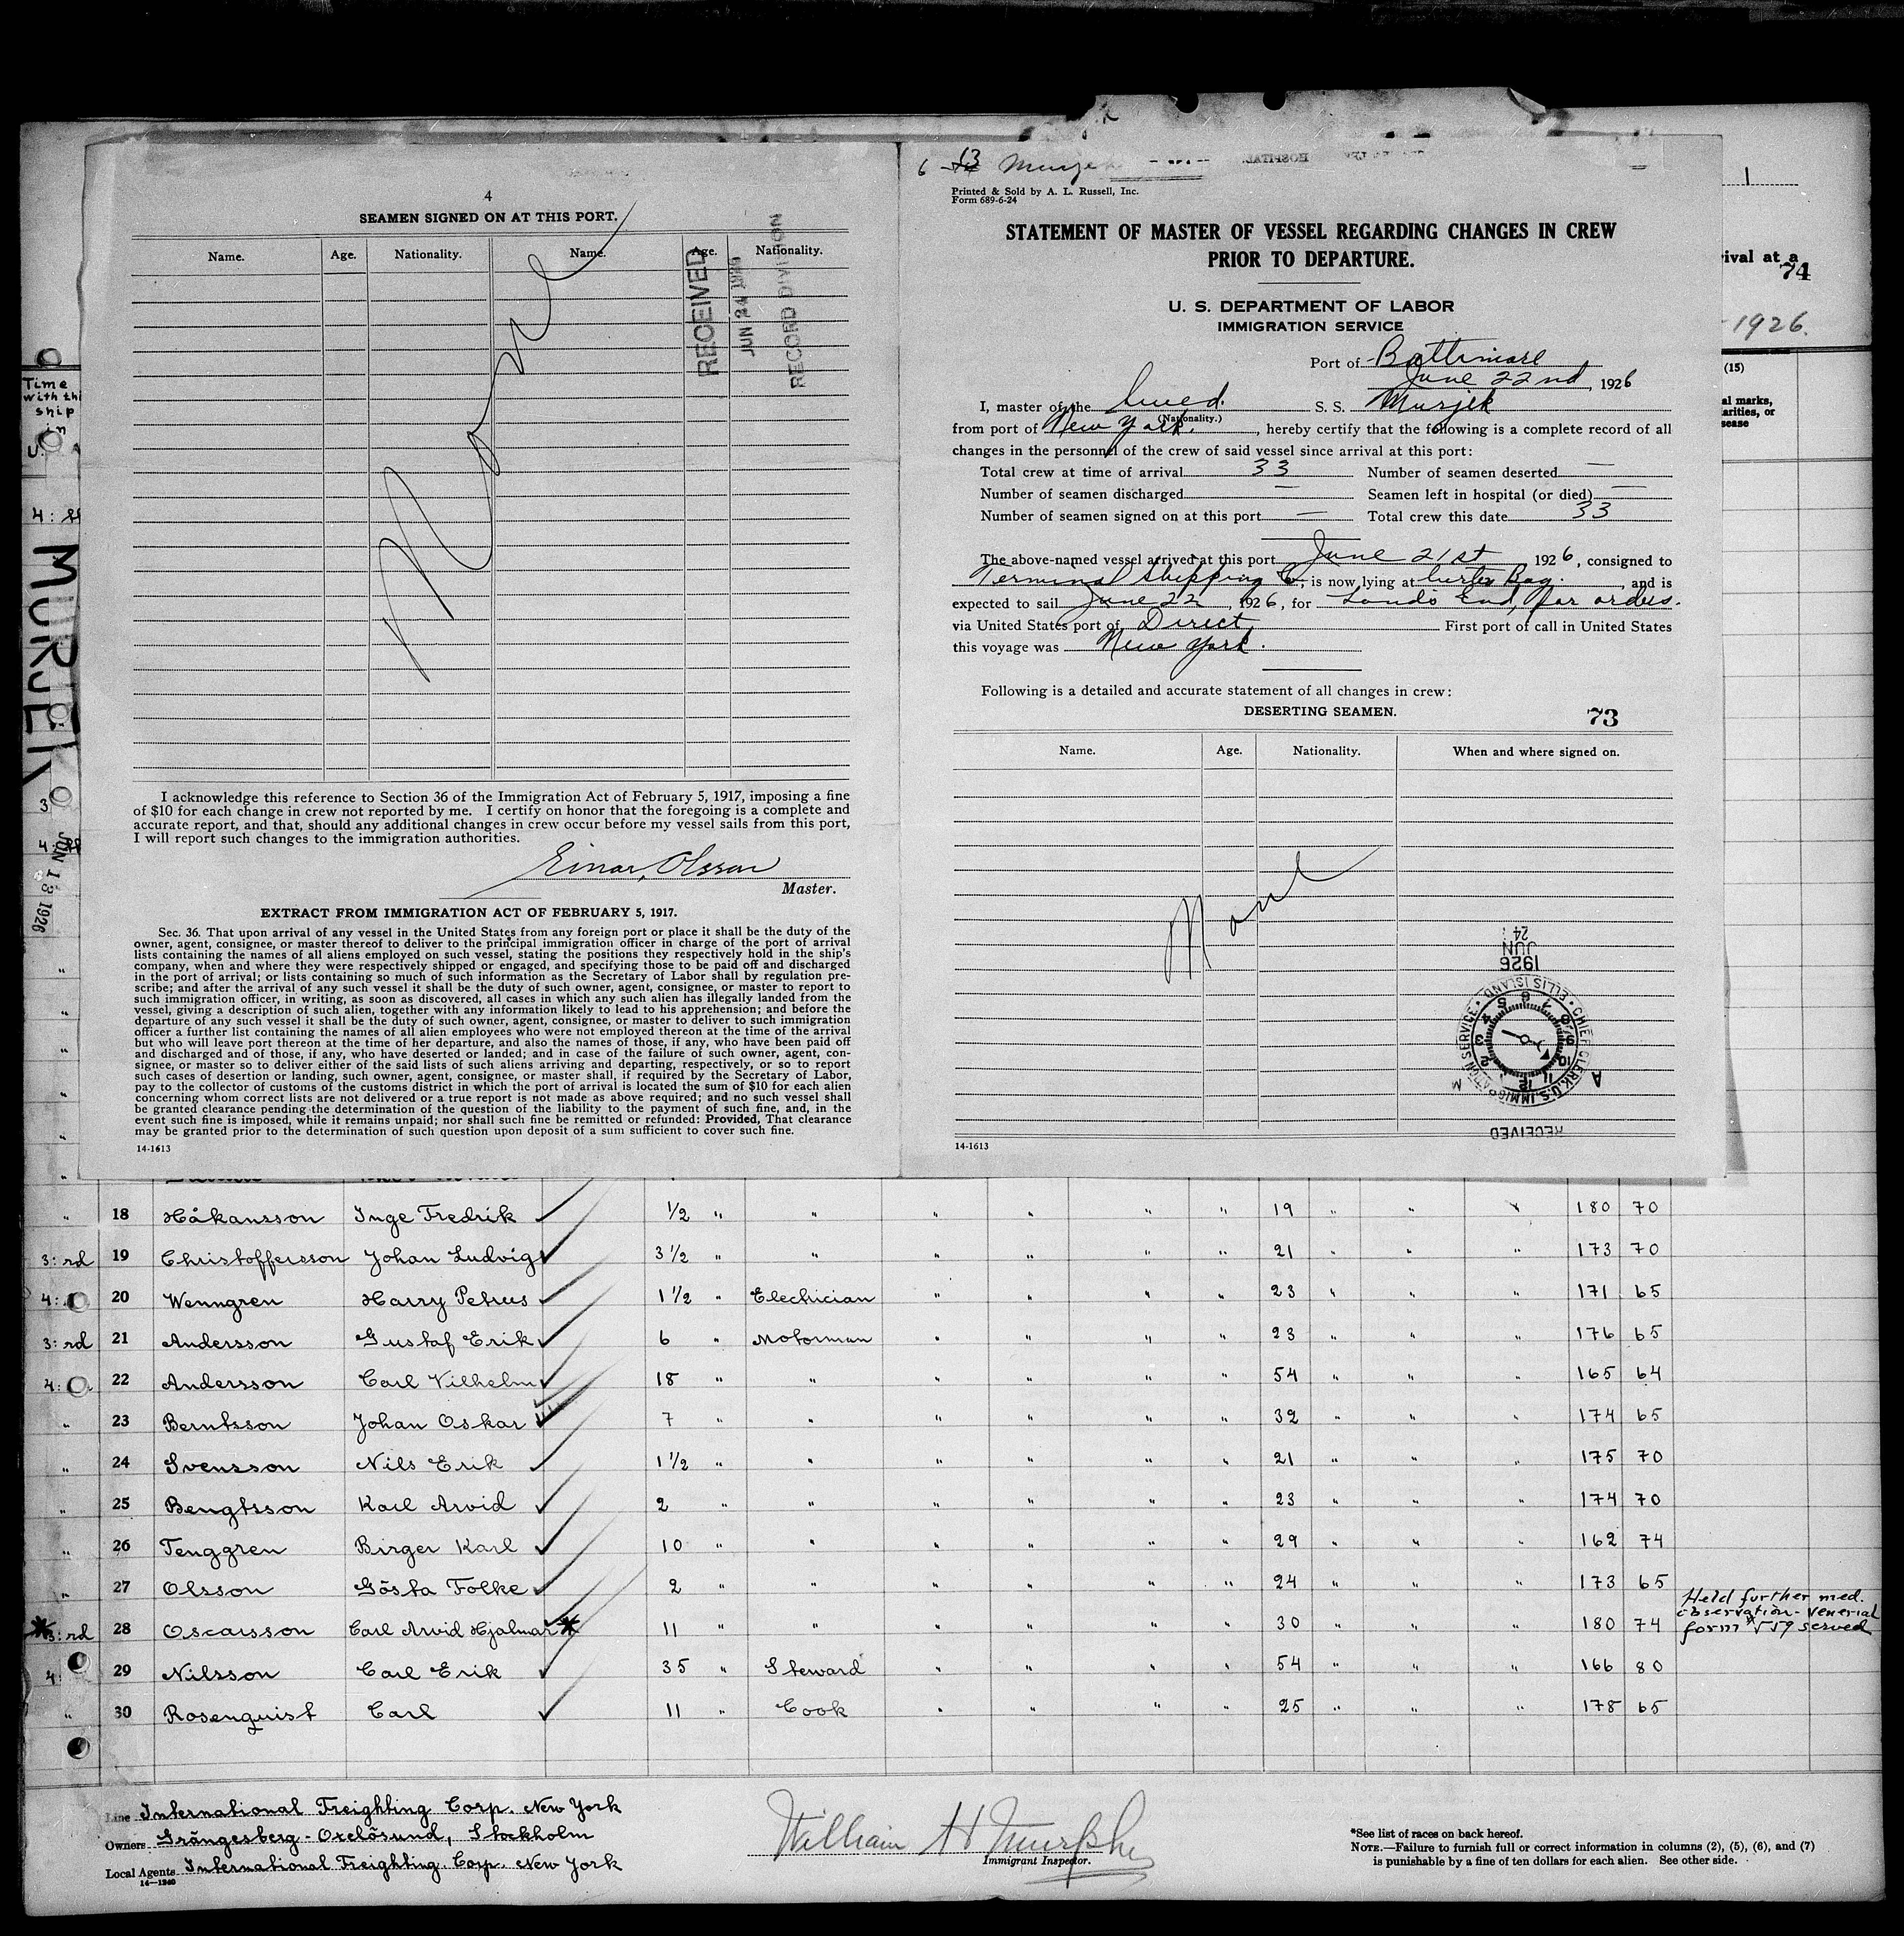 4
SEAMEN SIGNED ON AT THIS PORT.
Name. Age. Nationality. Name. Age. Nationality.
None
RECEIVED
JUN 24 1926
RECORD DIVISION
I acknowledge this reference to Section 36 of the Immigration Act of February 5, 1917, imposing a fine
of $10 for each change in crew not reported by me. I certify on honor that the foregoing is a complete and
accurate report, and that, should any additional changes in crew occur before my vessel sails from this port,
I will report such changes to the immigration authorities.
Einar Olsson
Master.
EXTRACT FROM IMMIGRATION ACT OF FEBRUARY 5, 1917.
Sec. 36. That upon arrival of any vessel in the United States from any foreign port or place it shall be the duty of the
owner, agent, consignee, or master thereof to deliver to the principal immigration officer in charge of the port of arrival
lists containing the names of all aliens employed on such vessel, stating the positions they respectively hold in the ship's
company, when and where they were respectively shipped or engaged, and specifying those to be paid off and discharged
in the port of arrival; or lists containing so much of such information as the Secretary of Labor shall by regulation pre-
scribe; and after the arrival of any such vessel it shall be the duty of such owner, agent, consignee, or master to report to
such immigration officer, in writing, as soon as discovered, all cases in which any such alien has illegally landed from the
vessel, giving a description of such alien, together with any information likely to lead to his apprehension; and before the
departure of any such vessel it shall be the duty of such owner, agent, consignee, or master to deliver to such immigration
officer a further list containing the names of all alien employees who were not employed thereon at the time of the arrival
but who will leave port thereon at the time of her departure, and also the names of those, if any, who have been paid off
and discharged and of those, if any, who have deserted or landed; and in case of the failure of such owner, agent, con-
signee, or master so to deliver either of the said lists of such aliens arriving and departing, respectively, or so to report
such cases of desertion or landing, such owner, agent, consignee, or master shall, if required by the Secretary of Labor,
pay to the collector of customs of the customs district in which the port of arrival is located the sum of $10 for each alien
concerning whom correct lists are not delivered or a true report is not made as above required; and no such vessel shall
be granted clearance pending the determination of the question of the liability to the payment of such fine, and, in the
event such fine is imposed, while it remains unpaid; nor shall such fine be remitted or refunded: Provided, That clearance
may be granted prior to the determination of such question upon deposit of a sum sufficient to cover such fine.
14-1613
6 13 Murjek
HOSPITAL
Printed & Sold by A. L. Russell, Inc.
Form 689-6-24
STATEMENT OF MASTER OF VESSEL REGARDING CHANGES IN CREW
PRIOR TO DEPARTURE.
U. S. DEPARTMENT OF LABOR
IMMIGRATION SERVICE
Port of Baltimore
June 22nd, 1926
I, master of the Swed. S. S. Murjek
(Nationality.)
from port of New York., hereby certify that the following is a complete record of all
changes in the personnel of the crew of said vessel since arrival at this port:
Total crew at time of arrival 33 Number of seamen deserted —
Number of seamen discharged — Seamen left in hospital (or died) —
Number of seamen signed on at this port — Total crew this date 33
The above-named vessel arrived at this port June 21st 1926, consigned to
Terminal Shipping Co, is now lying at Curtis Bay., and is
expected to sail June 22, 1926, for Lands End, for orders.
via United States port of Direct First port of call in United States
this voyage was New York.
Following is a detailed and accurate statement of all changes in crew:
DESERTING SEAMEN.
73
Name. Age. Nationality. When and where signed on.
None
24
JUN
1926
CHIEF CLERK, U.S. IMMIGRATION SERVICE • ELLIS ISLAND •
A M
RECEIVED
14-1613
1
rival at a
74
1926.
(15)
al marks,
arities, or
sease
Time
with thi
ship
in
U.
MURJEK
JUN 13 1926
" 18 Håkansson Inge Fredrik 1/2 " " " " " " 19 " " " 180 70
3:rd 19 Christoffersson Johan Ludvig 3 1/2 " " " " " " 21 " " " 173 70
4: 20 Wenngren Harry Petrus 1 1/2 " Electrician " " " " 23 " " " 171 65
3:rd 21 Andersson Gustaf Erik 6 " Motorman " " " " 23 " " " 176 65
4: 22 Andersson Carl Vilhelm 18 " " " " " " 54 " " " 165 64
" 23 Berntsson Johan Oskar 7 " " " " " " 32 " " " 174 65
" 24 Svensson Nils Erik 1 1/2 " " " " " " 21 " " " 175 70
" 25 Bengtsson Karl Arvid 2 " " " " " " 23 " " " 174 70
" 26 Tenggren Birger Karl 10 " " " " " " 29 " " " 162 74
" 27 Olsson Gösta Folke 2 " " " " " " 24 " " " 173 65
* 3:rd 28 Oscarsson Carl Arvid Hjalmar * 11 " " " " " " 30 " " " 180 74 Held further med. observation - venerial form # 559 served
4: 29 Nilsson Carl Erik 35 " Steward " " " " 54 " " " 166 80
" 30 Rosenquist Carl 11 " Cook " " " " 25 " " " 178 65
Line International Freighting Corp. New York
Owners Grängesberg-Oxelösund, Stockholm
Local Agents International Freighting Corp. New York
14—1240
William H Murphy
Immigrant Inspector.
*See list of races on back hereof.
NOTE.—Failure to furnish full or correct information in columns (2), (5), (6), and (7)
is punishable by a fine of ten dollars for each alien. See other side.